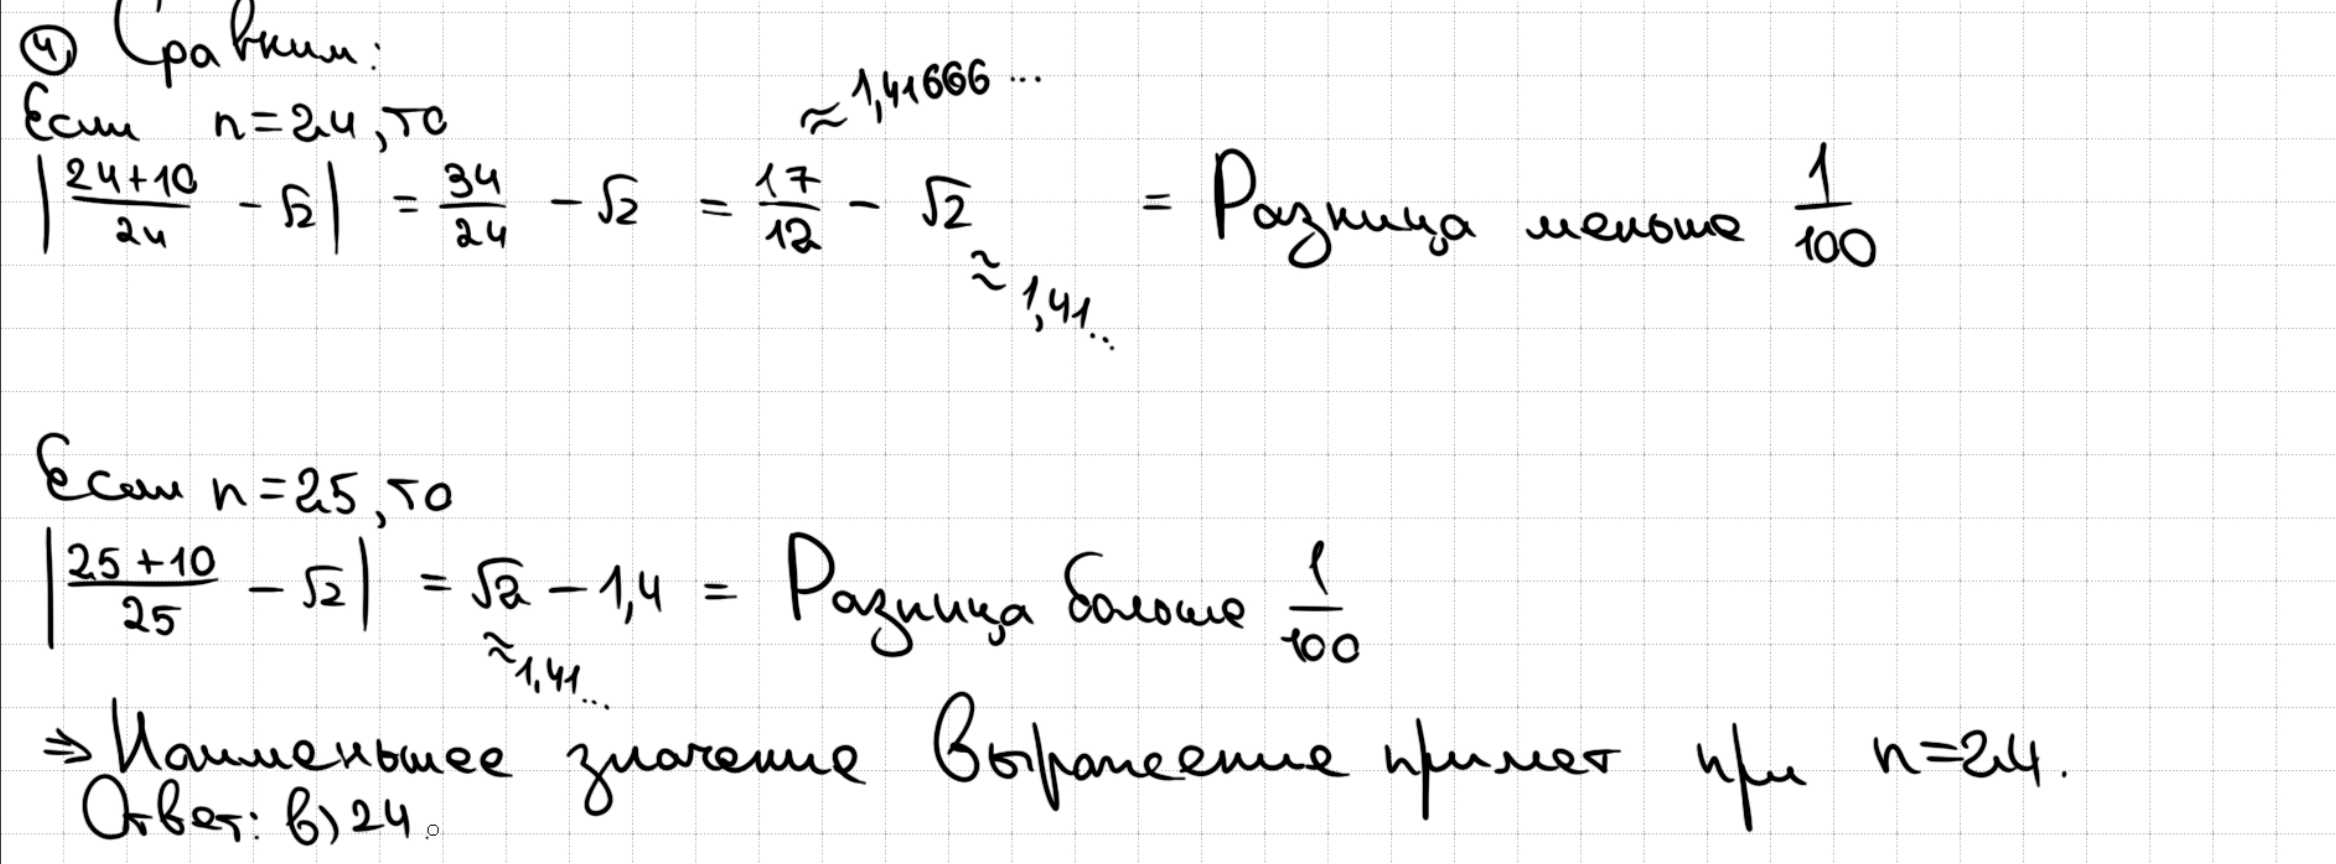 ④ Сравним:
Если n=24, то
|24+10/24 - √2| = 34/24 - √2 = 17/12 - √2 = Разница меньше 1/100
≈ 1,41666...
≈ 1,41...
Если n=25, то
|25+10/25 - √2| = √2 - 1,4 = Разница больше 1/100
≈ 1,41...
⇒ Наименьшее значение выражение примет при n=24.
Ответ: в) 24.